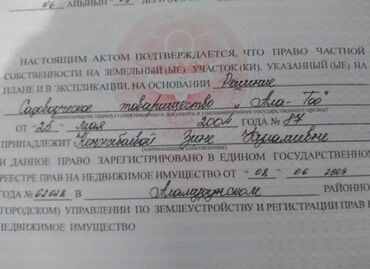 06 АЙЫНЫН " 08
НАСТОЯЩИМ АКТОМ ПОДТВЕРЖДАЕТСЯ, ЧТО ПРАВО ЧАСТНОЙ
СОБСТВЕННОСТИ НА ЗЕМЕЛЬНЫЙ (ЫЕ) УЧАСТОК (КИ), УКАЗАННЫЙ (ЫЕ) НА
ПЛАНЕ И В ЭКСПЛИКАЦИИ, НА ОСНОВАНИИ Решение
Садоводческое товарищество „ Ала-Тоо "
(наименование правоустанавливающего документа и уполномоченного государственного органа)
ОТ " 25 " мая 2004 ГОДА № 87
ПРИНАДЛЕЖИТ Зине
(наименование собственника)
И ДАННОЕ ПРАВО ЗАРЕГИСТРИРОВАНО В ЕДИНОМ ГОСУДАРСТВЕННОМ
РЕЕСТРЕ ПРАВ НА НЕДВИЖИМОЕ ИМУЩЕСТВО ОТ " 08 " 06 2009
ГОДА № В Аламудунском РАЙОННО
(ГОРОДСКОМ) УПРАВЛЕНИИ ПО ЗЕМЛЕУСТРОЙСТВУ И РЕГИСТРАЦИИ ПРАВ
НЕДВИЖИМОЕ ИМУЩЕСТВО